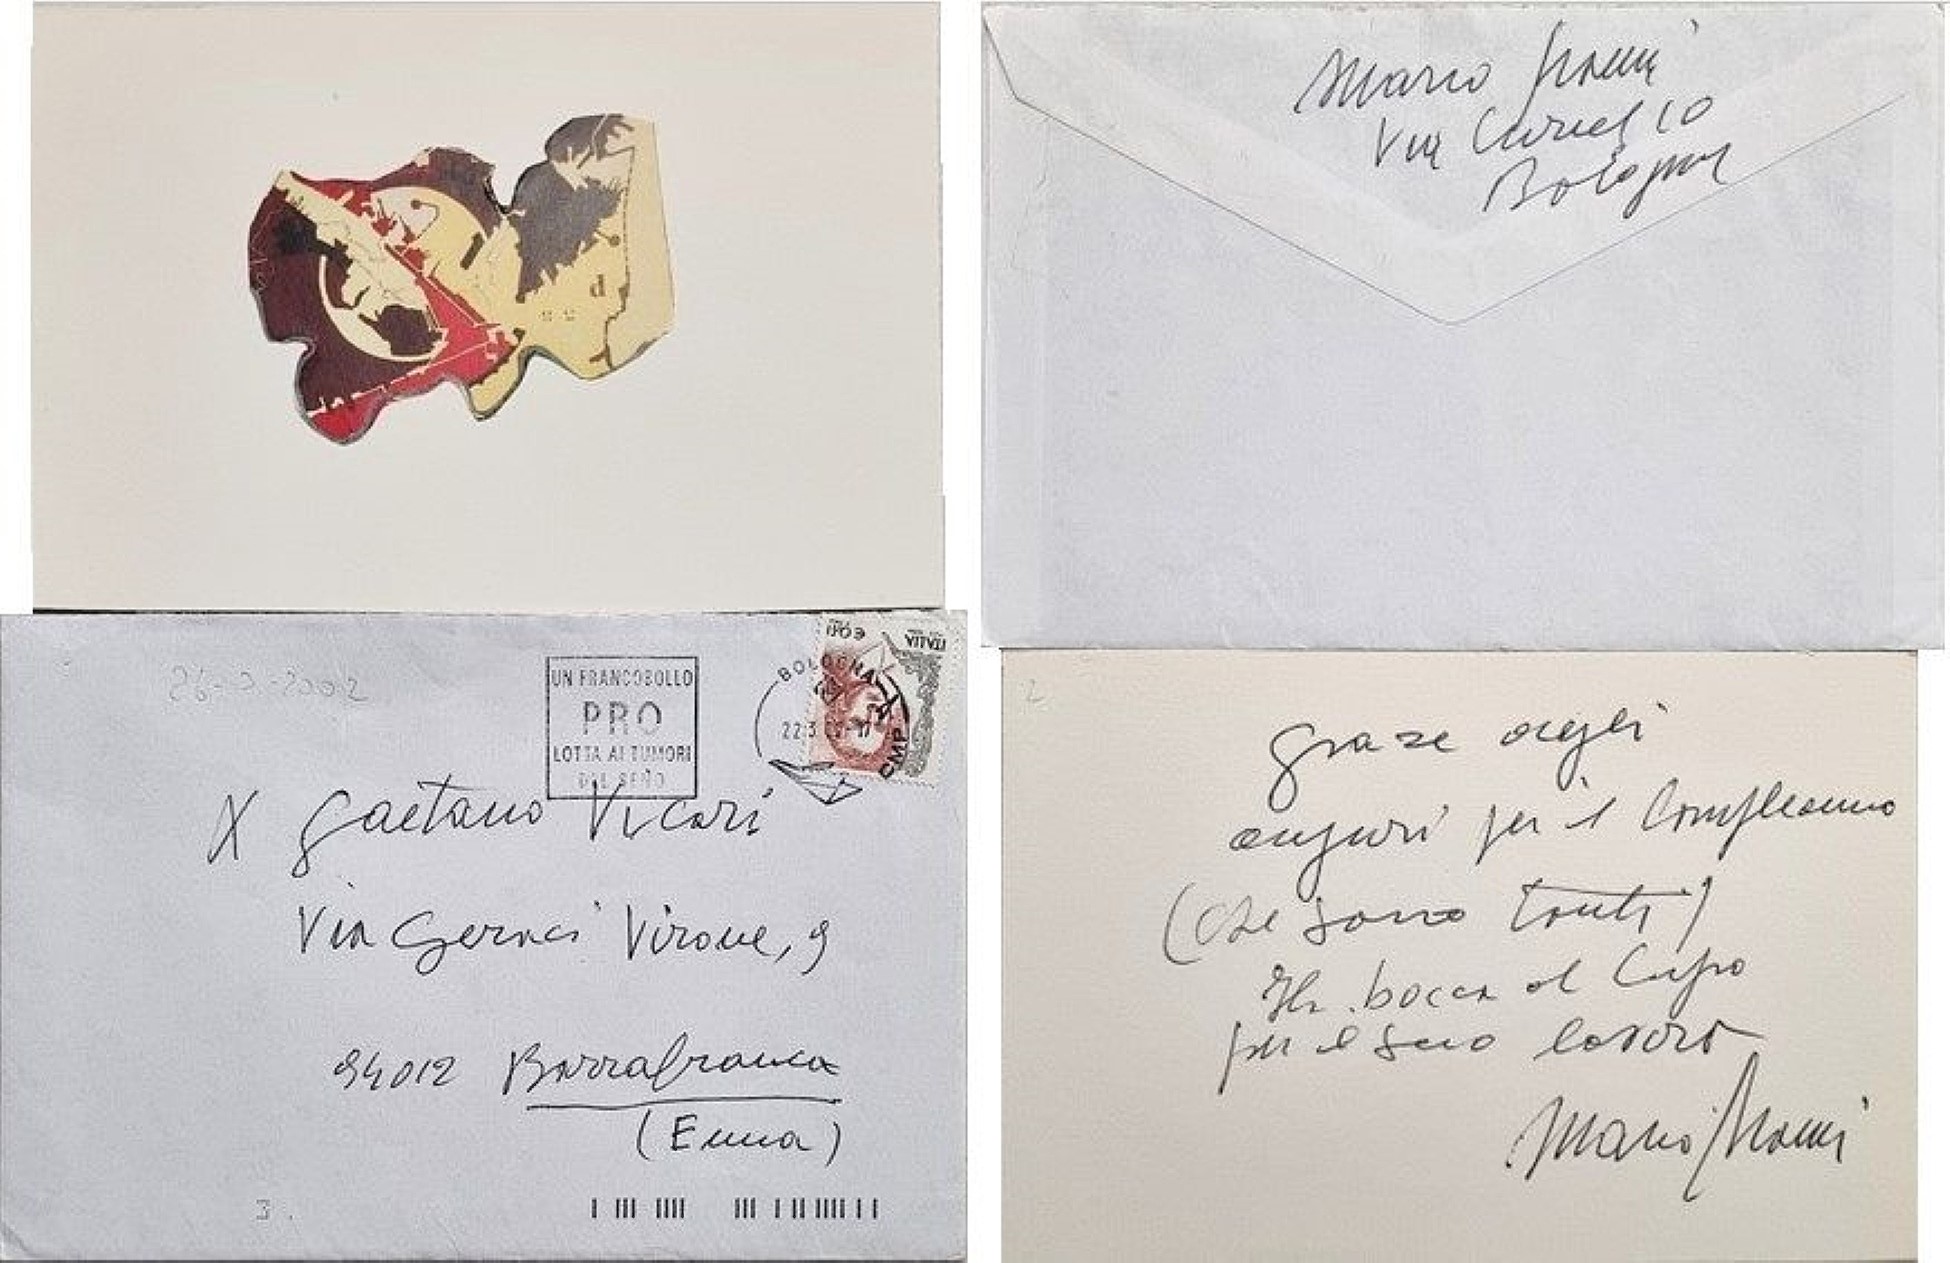 d
Mario Nanni
Via Curiel 10
Bologna
26-3-2002
UN FRANCOBOLLO
PRO
LOTTA AI TUMORI
DEL SENO
BOLOGNA
22.3
CMP
ITALIA
X Gaetano Vicari
Via Geraci Virone, 9
94012 Barrafranca
(Enna)
3.
2
Grazie degli
auguri per il compleanno
(che sono tanti)
In bocca al lupo
per il suo lavoro
Mario Nanni